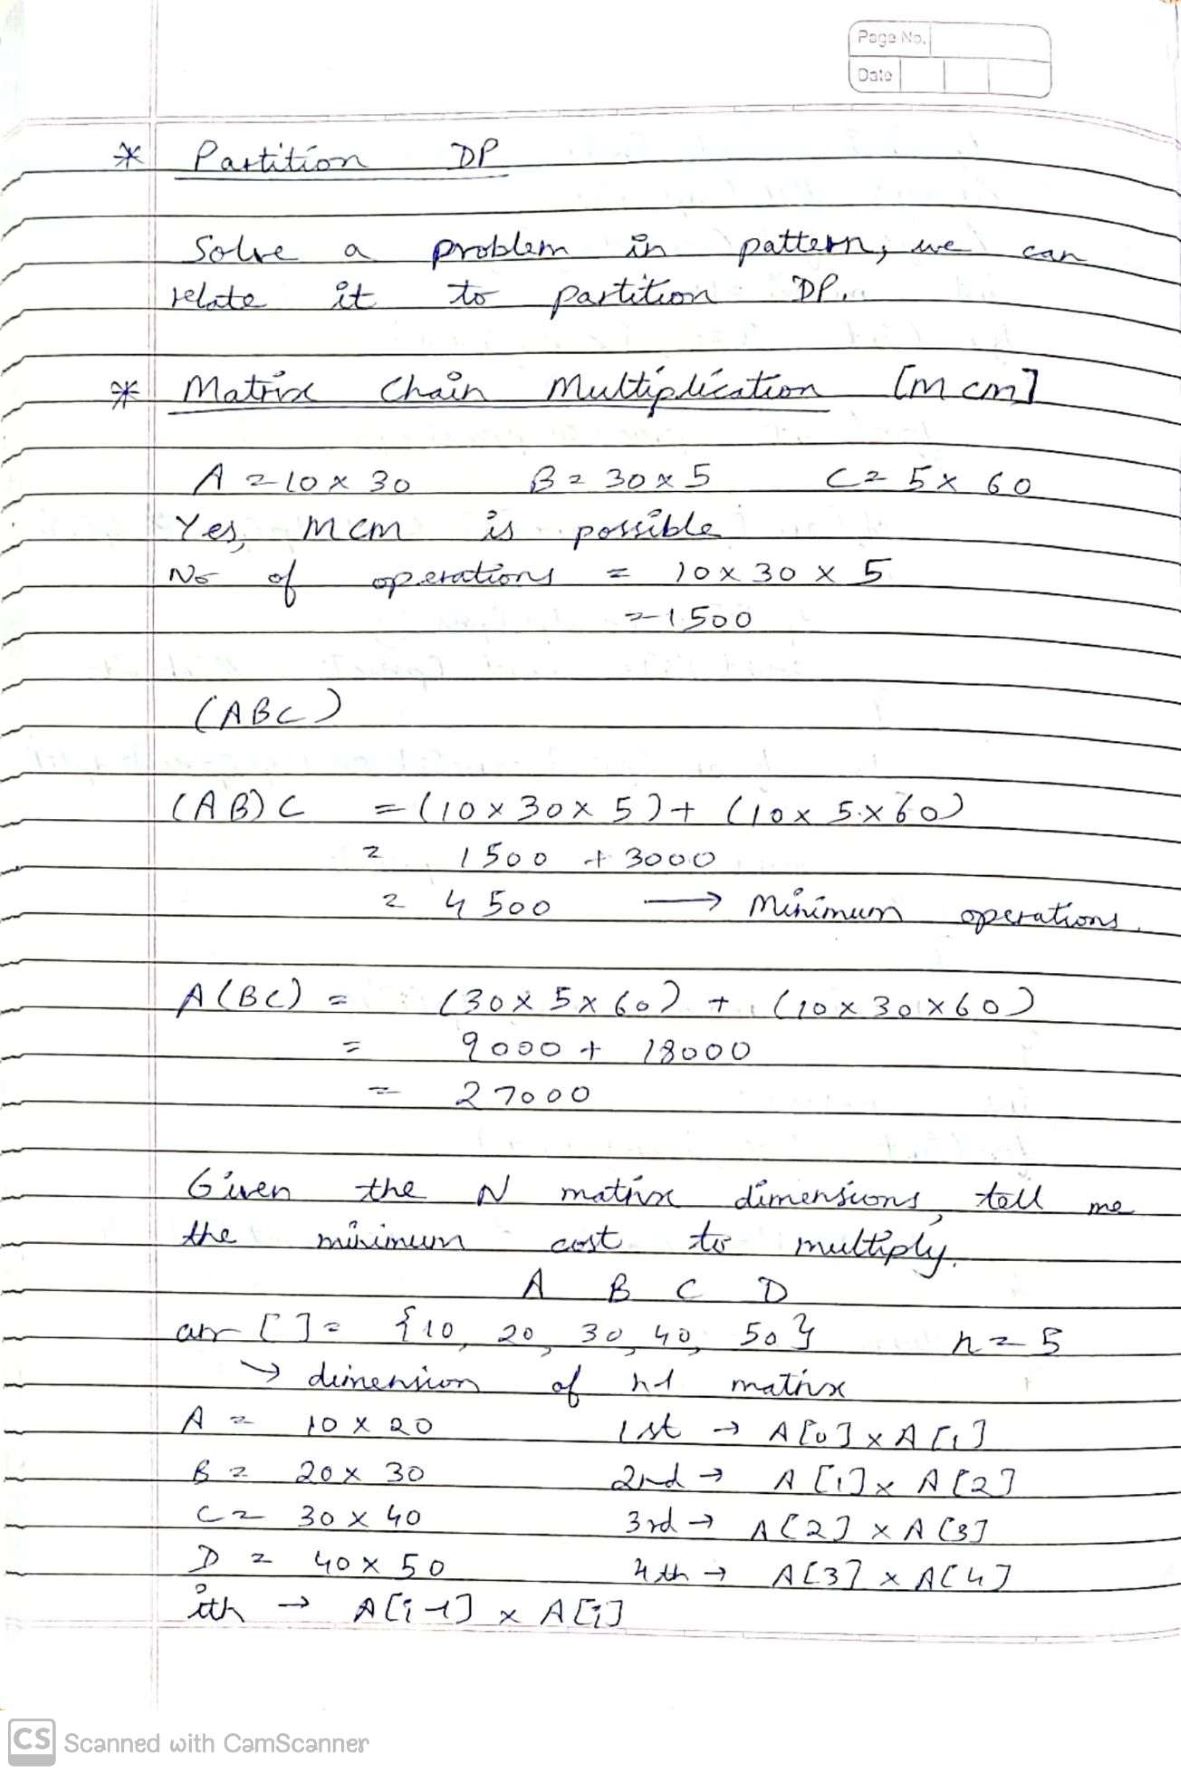 Page No.
Date
* Partition DP
Solve a problem in pattern, we can
relate it to partition DP.
* Matrix Chain Multiplication [MCM]
A = 10 x 30 B = 30 x 5 C = 5 x 60
Yes, MCM is possible
No of operations = 10 x 30 x 5
= 1500
(ABC)
(AB)C = (10 x 30 x 5) + (10 x 5 x 60)
= 1500 + 3000
= 4500 → Minimum operations.
A(BC) = (30 x 5 x 60) + (10 x 30 x 60)
= 9000 + 18000
= 27000
Given the N matrix dimensions, tell me
the minimum cost to multiply.
A B C D
arr [] = {10, 20, 30, 40, 50} n = 5
→ dimension of n-1 matrix
A = 10 x 20 1st → A[0] x A[1]
B = 20 x 30 2nd → A[1] x A[2]
C = 30 x 40 3rd → A[2] x A[3]
D = 40 x 50 4th → A[3] x A[4]
ith → A[i-1] x A[i]
CS Scanned with CamScanner